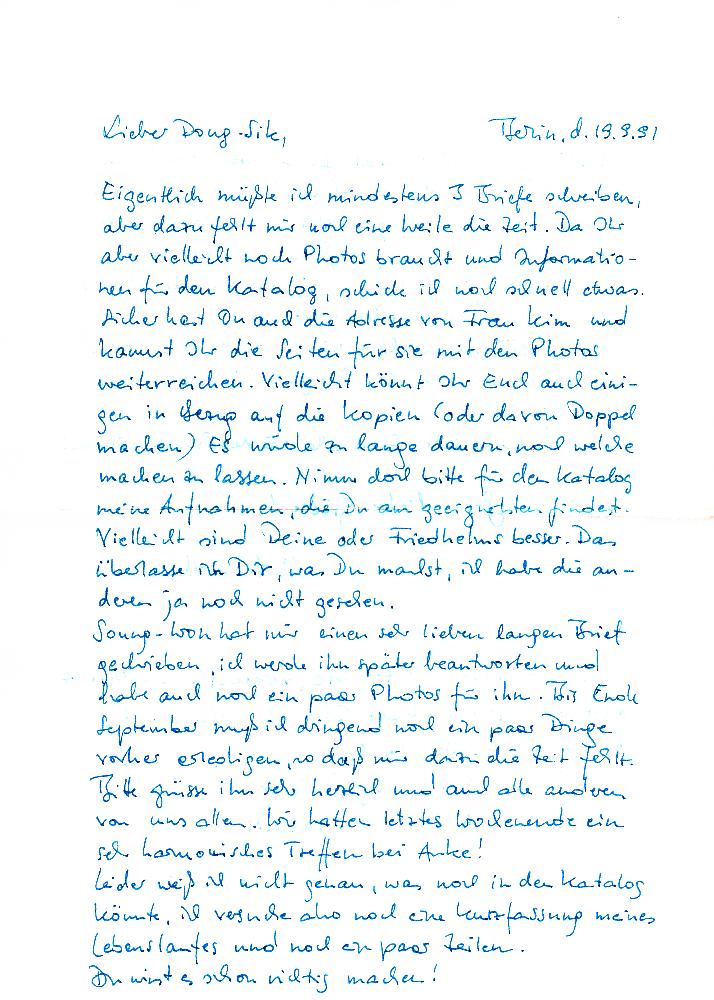 Lieber Dong-Sik, Berlin, d. 19.9.91
Eigentlich müßte ich mindestens 3 Briefe schreiben,
aber dazu fehlt mir noch eine Weile die Zeit. Da Ihr
aber vielleicht noch Photos braucht und Informatio-
nen für den Katalog, schicke ich noch schnell etwas.
Sicher hast Du auch die Adresse von Frau Kim und
kannst Ihr die Seiten für sie mit den Photos
weiterreichen. Vielleicht könnt Ihr Euch auch eini-
gen in Bezug auf die Kopien (oder davon Doppel
machen) Es würde zu lange dauern, noch welche
machen zu lassen. Nimm doch bitte für den Katalog
meine Aufnahmen, die Du am geeignetsten findest.
Vielleicht sind Deine oder Friedhelms besser. Das
überlasse ich Dir, was Du machst, ich habe die an-
deren ja noch nicht gesehen.
Soung-Won hat mir einen sehr lieben langen Brief
geschrieben, ich werde ihn später beantworten und
habe auch noch ein paar Photos für ihn. Bis Ende
September muß ich dringend noch ein paar Dinge
vorher erledigen, so daß mir dazu die Zeit fehlt.
Bitte grüsse ihn sehr herzlich und auch alle anderen
von uns allen. Wir hatten letztes Wochenende ein
sehr harmonisches Treffen bei Anke!
Leider weiß ich nicht genau, was noch in den Katalog
könnte, ich versuche also noch eine Kurzfassung meines
Lebenslaufes und noch ein paar Zeilen.
Du wirst es schon richtig machen!